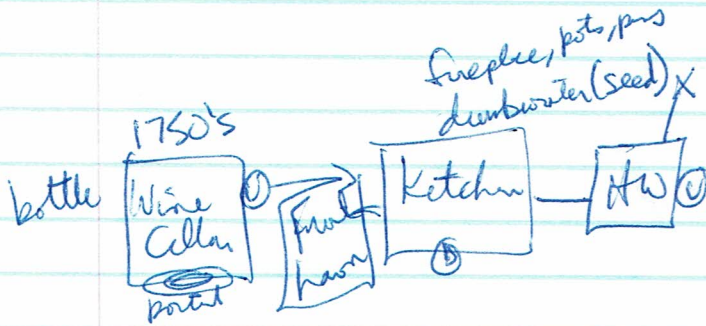 fireplace, pots, pans
dumbwaiter (seed) X
1750's
bottle
Wine
Cellar
U
Front
Lawn
Kitchen
D
HW
U
portal